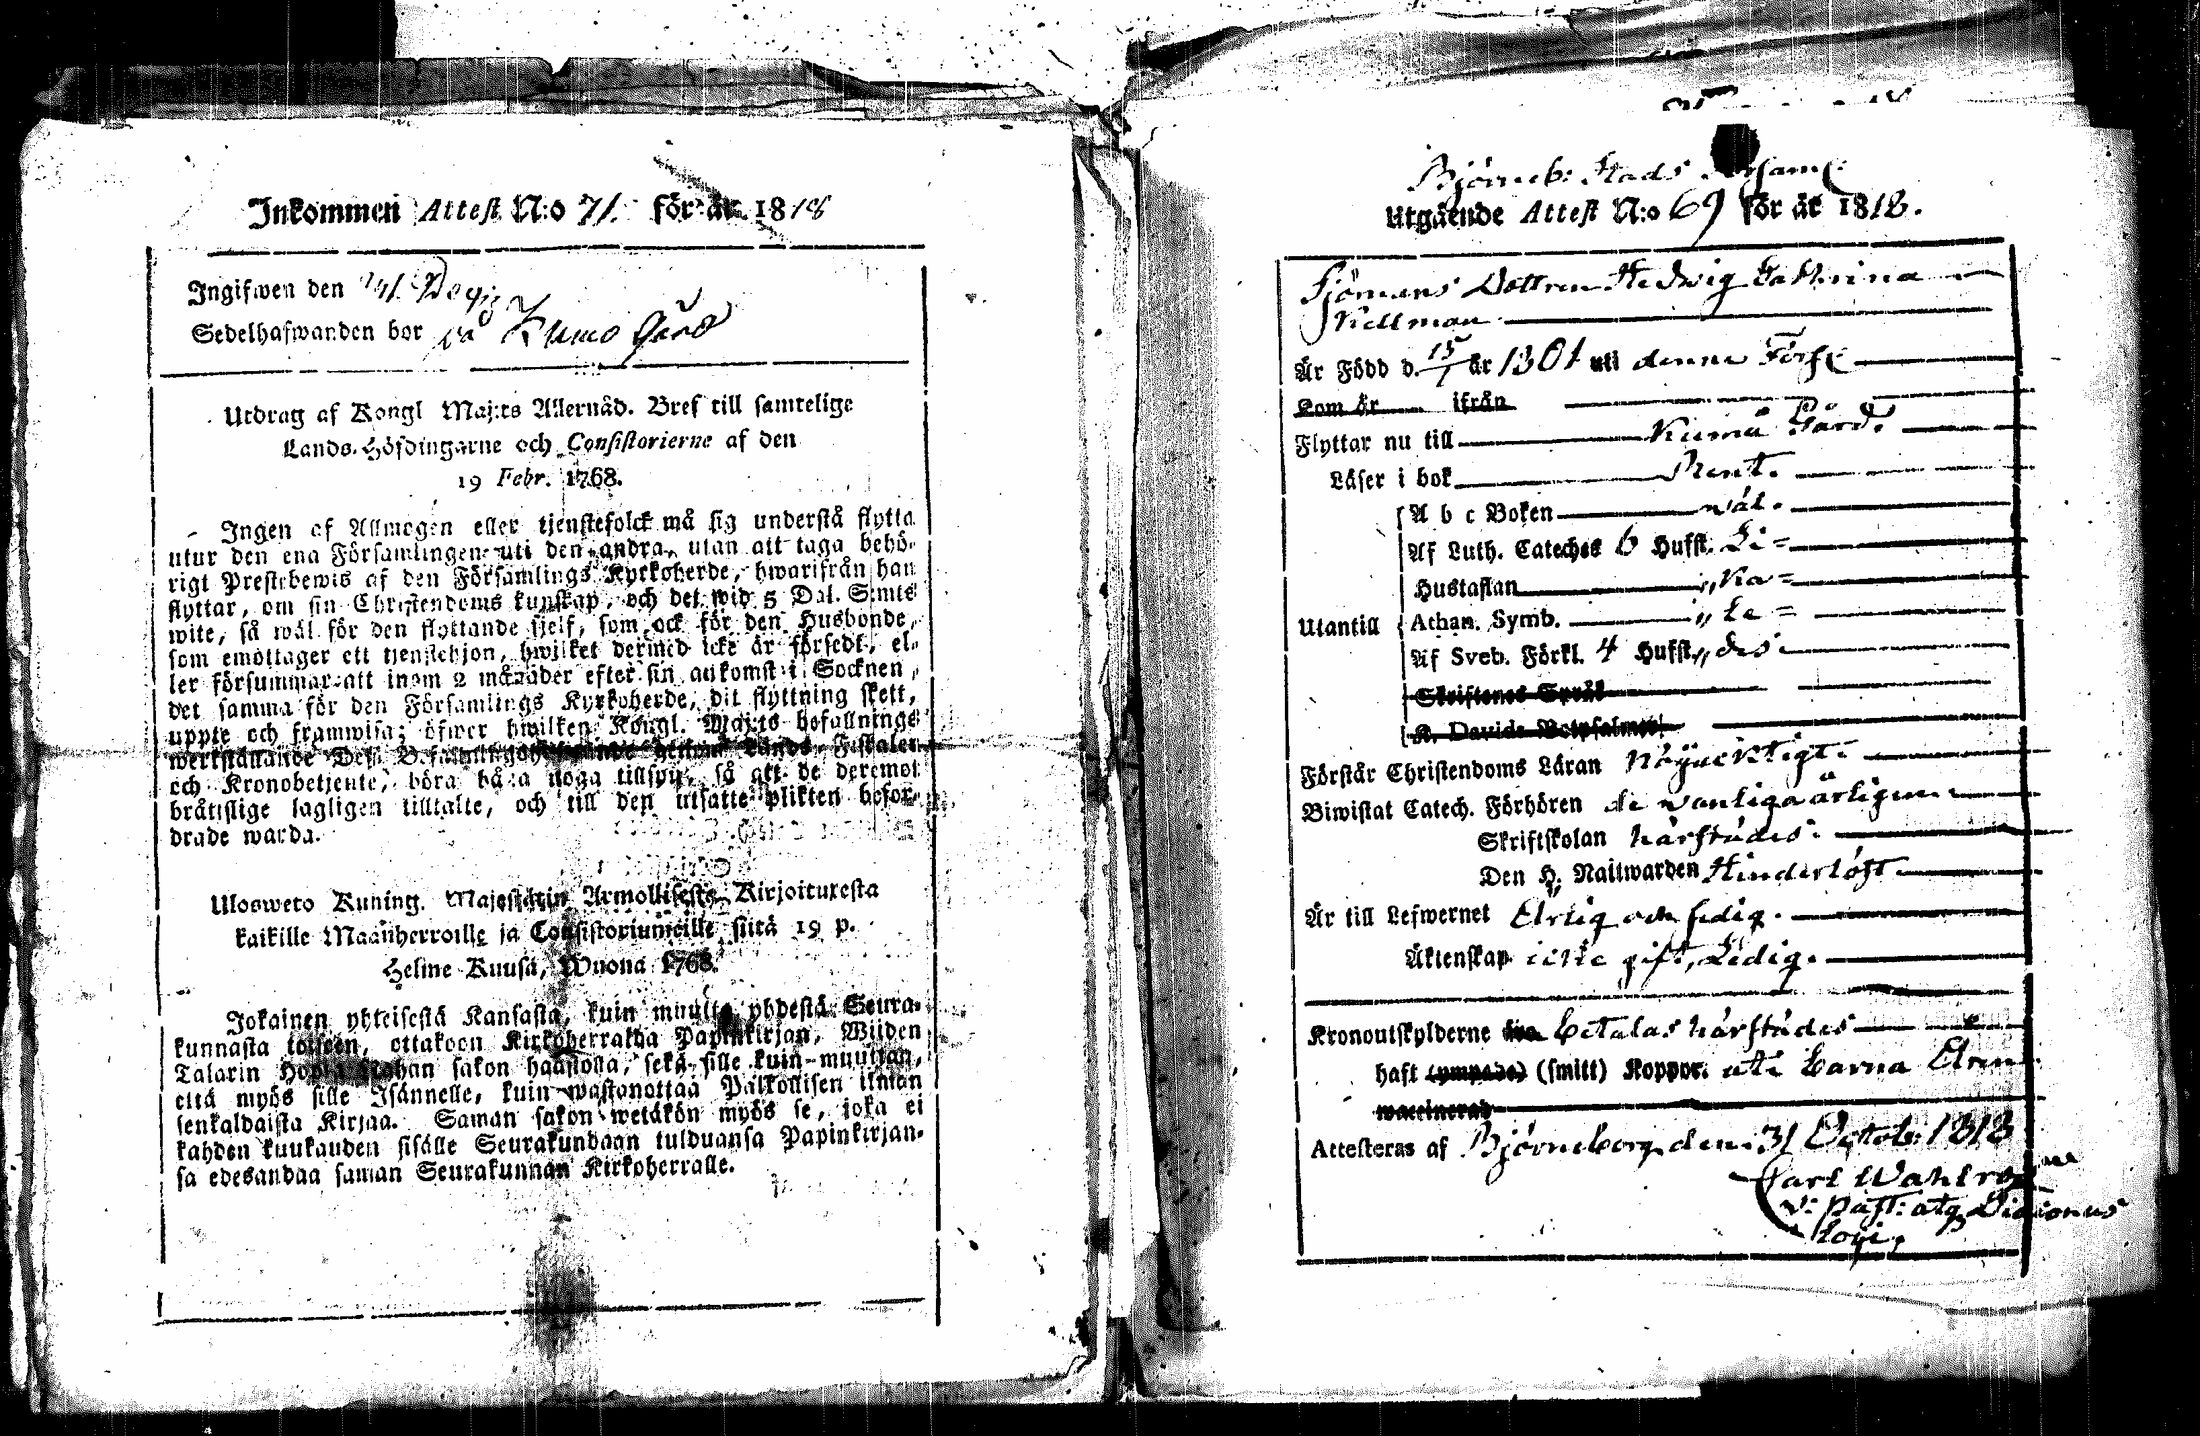 Inkommen Attest N:o 71. för år 1818
Ingifwen den
Sedelhafwanden bor på Kumo Gård
Utdrag af Kongl Maj:ts Allernåd. Bref till samtelige
Lands-Höfdingarne och Consistorierne af den
19 Febr. 1768.
Ingen af Allmogen eller tjenstefolck må sig understå flytta
utur den ena Församlingen uti den andra, utan att taga behö-
rigt Prestebewis af den Församlings Kyrkoherde, hwarifrån han
flyttar, om sin Christendoms kunskap, och det wid 5 Dal. S:mts
wite, så wäl för den flyttande sjelf, som ock för den Husbonde,
som emottager ett tjenstehjon, hwilket dermed icke är försedt, el-
ler försummar att inom 2 månader efter sin ankomst i Socknen,
det samma för den Församlings Kyrkoherde, dit flyttning skett,
uppte och framwisa; öfwer hwilken Kongl. Maj:ts befallnings
werkställande Dess Befallningshafwande genom Lands-Fiskaler
och Kronobetjente, böra hafwa noga tillsyn, så att de deremot
bråttslige lagligen tilltalte, och till den utsatte plikten befor-
drade warda.
Ulosweto Kuning. Majestätin Armollisesta Kirjoituxesta
kaikille Maanherroille ja Consistoriumeille siitä 19 p.
Helme Kuusa, Wuona 1768.
Jokainen yhteisestä Kansasta, kuin muutta yhdestä Seura-
kunnasta toiseen, ottakoon Kirkoherralda Papinkirjan, Wiiden
Talarin Hopia Rahan sakon haastolla, sekä sille kuin muuttan,
että myös sille Isännelle, kuin wastanottaa Palkollisen ilman
senkaldaista Kirjaa. Saman sakon wetäkön myös se, joka ei
kahden kuukauden sisälle Seurakundaan tulduansa Papinkirjan-
sa edesandaa saman Seurakunnan Kirkoherralle.
Björneb: Stads Församl:
Utgående Attest N:o 69 för år 1818.
Sjömans Dottren Hedwig Cathrina
Kellman
Är Född d. 15/1 år 1801 uti denne Förs:
Kom år ifrån
Flyttar nu till Kumå Gård.
Läser i bok Rent.
A b c Boken wäl.
Af Luth. Cateches 6 Hufst. Li=
Hustaflan „ka=
Utantill Athan. Symb. „Le=
Af Sveb. Förkl. 4 Hufst. „des
Skriftenes Språk
K. Davids Botpsalmer
Förstår Christendoms Läran nöjacktigt
Biwistat Catech. Förhören de wanliga årligen
Skriftskolan härstädes
Den H. Nattwarden Hinderlöst
Är till Lefwernet Ärlig och sedig.
Äktenskap icke gift, Ledig.
Kronoutskylderne betalas härstädes
haft (ympade) (smitt) Koppor. uti barna Åren
waccinerad
Attesteras af Björneborg den 31 Octob: 1818
Carl Wahlroos
v: Past: atq Diaconus
Loci.